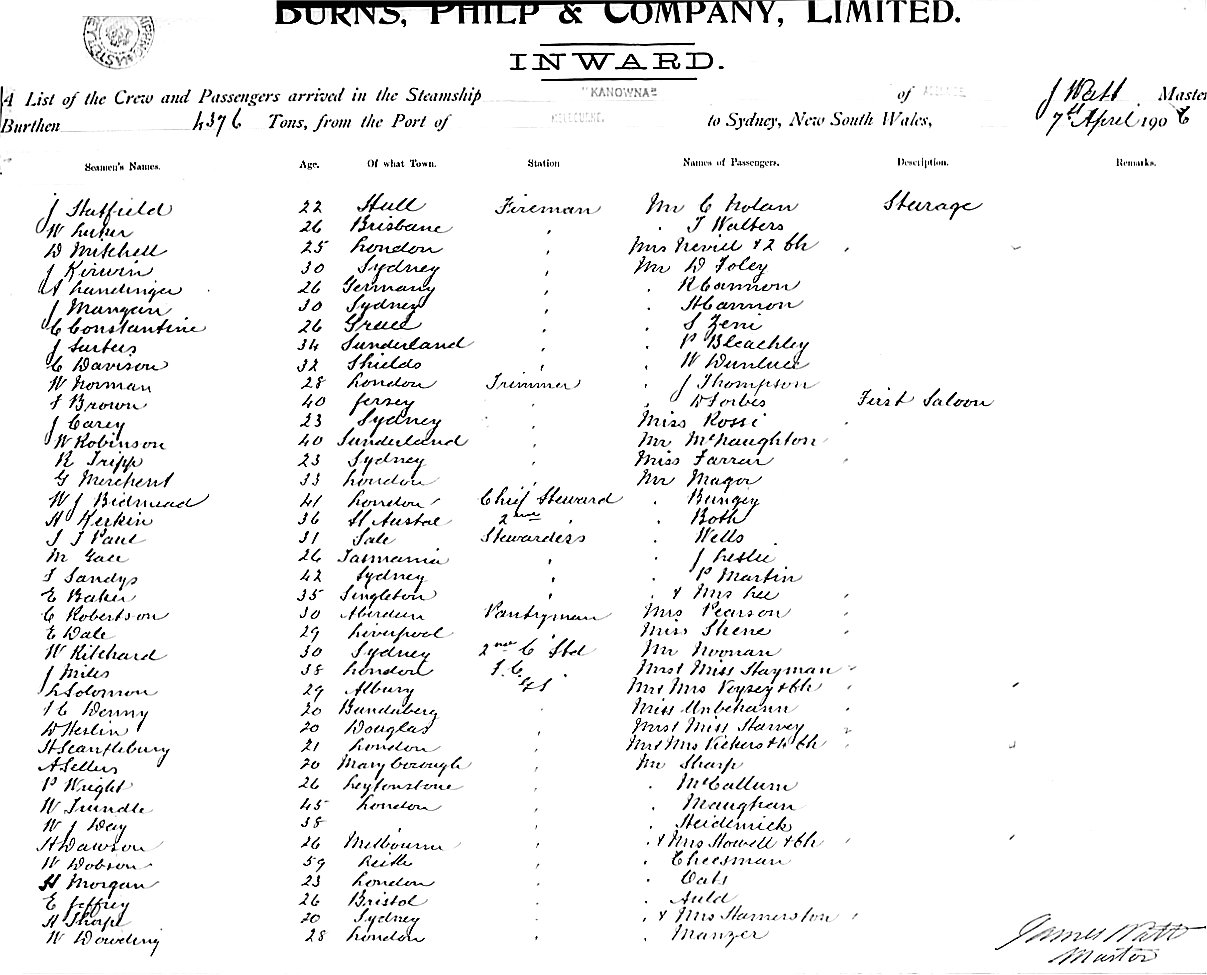 BURNS, PHILP & COMPANY, LIMITED.
INWARD.
A List of the Crew and Passengers arrived in the Steamship "KANOWNA" of J Watt Master
Burthen 4376 Tons, from the Port of MELBOURNE. to Sydney, New South Wales, 7th April 1906
Seamen's Names. Age. Of what Town. Station Names of Passengers. Description. Remarks.
J Hatfield 22 Hull Fireman Mr C Nolan Sturage
W 26 Brisbane " T Walters
D Mitchell 25 London " Mrs Nevill & 2 Ch "
J Kirwin 30 Sydney " Mr D Foley
A Landinger 26 Germany " " R Cannon
J Mangan 30 Sydney " " H Cannon
C Constantine 26 " " S Zeni
J 34 Sunderland " " P Bleachley
C Davison 32 Shields " " W Dunluce
W Norman 28 London Trimmer " J Thompson
T Brown 40 Jersey " " D Forbes First Saloon
J Carey 23 Sydney " Miss Rossi "
W Robinson 40 Sunderland " Mr McNaughton
R Tripp 23 Sydney " Miss Farrar "
G Merchent 33 London " Mr Magor
W J Bidmead 41 London Chief Steward " Bungey
H Kerkin 36 St Austal 2nd " " Both
S J Paul 31 Sale Stewardess " Wells
M 26 Tasmania " " J Leslie
T Sandys 42 Sydney " " P Martin
E Baker 35 Singleton " " & Mrs Lee "
C Robertson 30 Aberdeen Pantryman Mrs Pearson "
E Dale 29 Liverpool " Miss Shene "
W Kilchard 30 Sydney 2nd C Std Mr Noonan
J Miles 38 London T.C. " Mrs & Miss Hayman "
L Solomon 29 Albury GS Mr & Mrs Voysey & Ch "
T C Denny 20 Bundaberg " Miss Unbehann "
D Heslin 20 Douglas " Mrs & Miss Harvey "
H Scantlebury 21 London " Mr & Mrs Vickers & Ch "
A Sellers 20 Maryborough " Mr Sharp
P Wright 26 Leytonstone " " McCallum
W Trundle 45 London " " Maughan
W J Day 38 " " Heidenrick
H Dawson 26 Melbourne " " & Mrs Howell & Ch "
W Dobson 59 Leith " " Cheesman
H Morgan 23 London " " Oats
E Jeffrey 26 Bristol " " Auld
H Tharpe 20 Sydney " " & Mrs Hamerston "
W Dowding 28 London " " Manzer
James Watt
Master